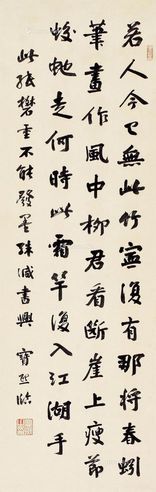 若人今已無此竹寧復有那將春蚓
筆畫作風中柳君看斷崖上瘦節
蛟蛇走何時此霜竿復入江湖手
此紙礬重不能發墨殊減書興 寶熙臨